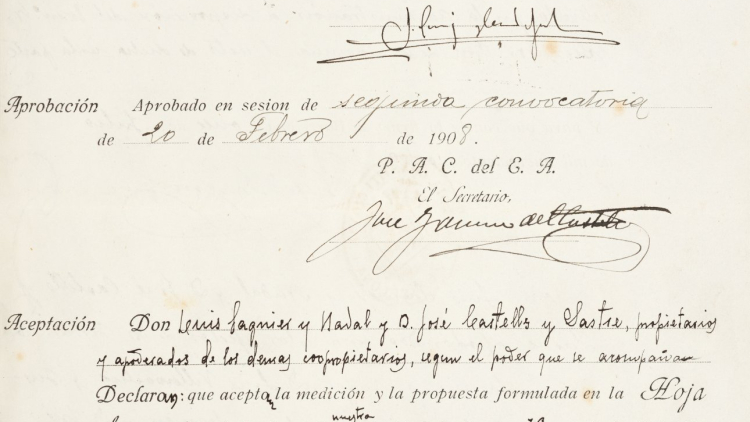 Aprobación Aprobado en sesion de segunda convocatoria
de 20 de Febrero de 1908.
P. A. C. del E. A.
El Secretario,
Jose
Aceptación Don Luis Sagnier y Nadal y D. José Castells y Sastre, propietarios
y apoderados de los demas coopropietarios, segun el poder que se acompaña
Declaran: que aceptan la medición y la propuesta formulada en la Hoja
nuestra